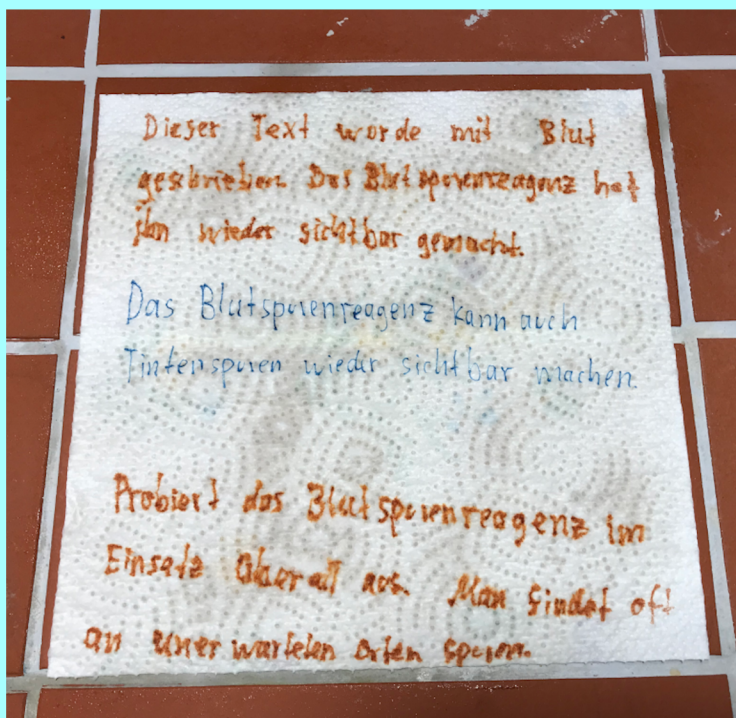 Dieser Text wurde mit Blut
geschrieben. Das Blutspurenreagenz hat
ihn wieder sichtbar gemacht.
Das Blutspurenreagenz kann auch
Tintenspuren wieder sichtbar machen.
Probiert das Blutspurenreagenz im
Einsatz überall aus. Man findet oft
an unerwarteten Orten spuren.